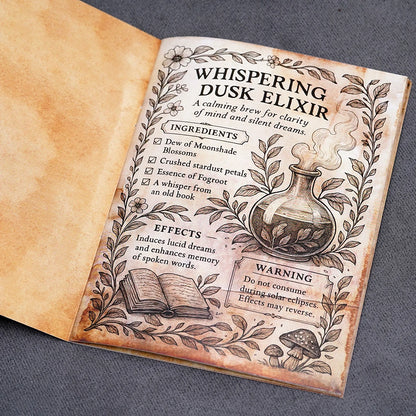 WHISPERING
DUSK ELIXIR
A calming brew for clarity
of mind and silent dreams.
INGREDIENTS
☑ Dew of Moonshade
Blossoms
☑ Crushed stardust petals
☑ Essence of Fogroot
☑ A whisper from
an old book
EFFECTS
Induces lucid dreams
and enhances memory
of spoken words.
WARNING
Do not consume
during solar eclipses.
Effects may reverse.